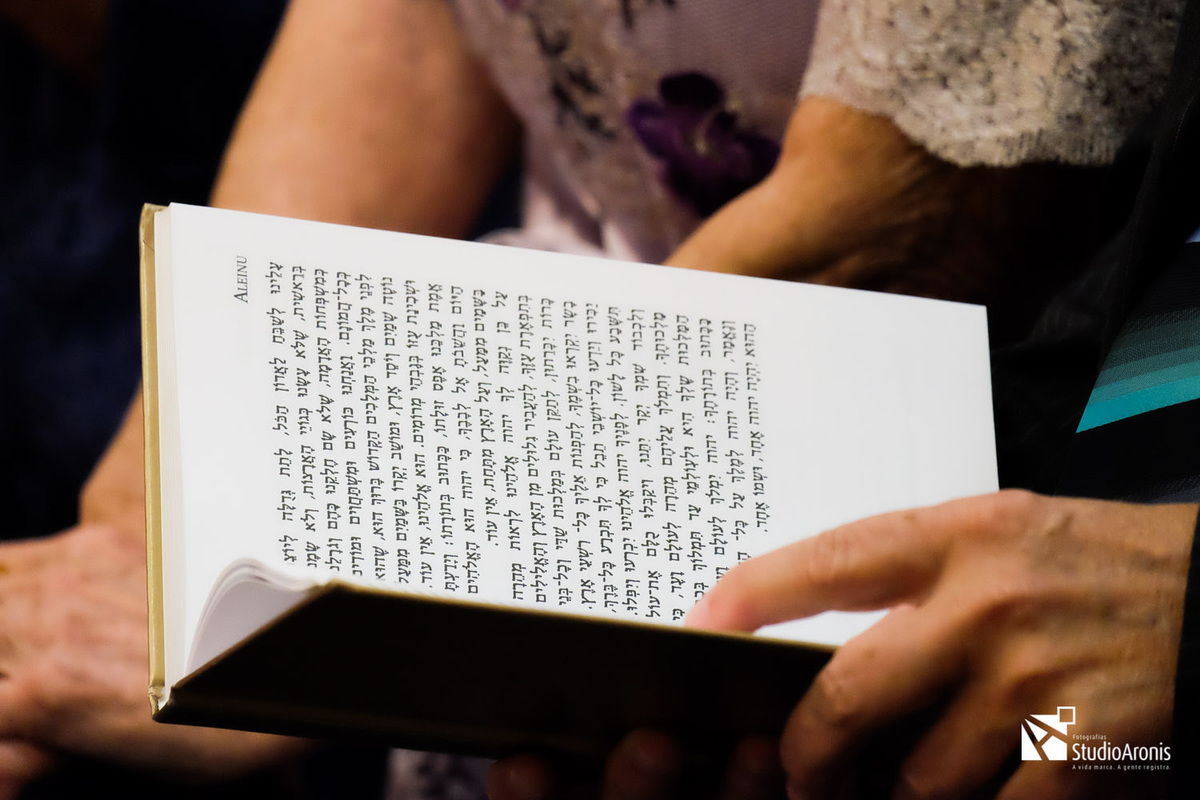 ALEINU
עלינו לשבח לאדון הכל, לתת גדלה ליוצר
בראשית, שלא עשנו כגויי הארצות, ולא שמנו
כמשפחות האדמה, שלא שם חלקנו כהם וגרלנו
ככל-המונם. ואנחנו כורעים ומשתחוים ומודים
לפני מלך מלכי המלכים הקדוש ברוך הוא. שהוא
נוטה שמים ויסד ארץ, ומושב יקרו בשמים ממעל
ושכינת עזו בגבהי מרומים. הוא אלהינו אין עוד.
אמת מלכנו אפס זולתו. ככתוב בתורתו: וידעת
היום והשבת אל לבבך כי יהוה הוא האלהים
בשמים ממעל ועל הארץ מתחת, אין עוד.
על כן נקוה לך יהוה אלהינו לראות מהרה
בתפארת עזך להעביר גלולים מן הארץ והאלילים
כרות יכרתון. לתקן עולם במלכות שדי. וכל-בני
בשר יקראו בשמך להפנות אליך כל רשעי ארץ.
יכירו וידעו כל-יושבי תבל כי לך תכרע כל-ברך,
תשבע כל לשון. לפניך יהוה אלהינו יכרעו ויפלו.
ולכבוד שמך יקר יתנו. ויקבלו כלם את-עול
מלכותך. ותמלך עליהם מהרה לעולם ועד. כי
המלכות שלך היא ולעולמי עד תמלוך
ככתוב בתורתך: יהוה ימלך לעולם
ונאמר: והיה יהוה למלך על כל
ההוא יהיה יהוה אחד ושמו אחד.
Fotografias
StudioAronis
A vida marca. A gente registra.